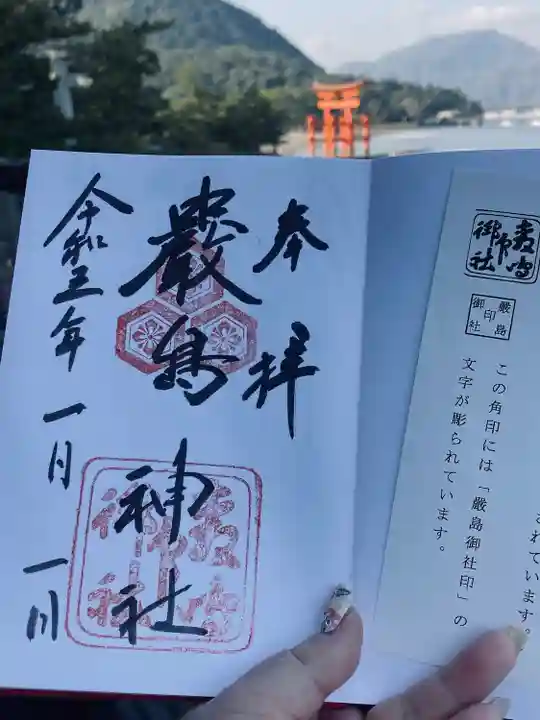 厳島
御印
社
この角印には「厳島御社印」の
文字が彫られています。
されています。
奉拝
厳島神社
令和三年一月一日